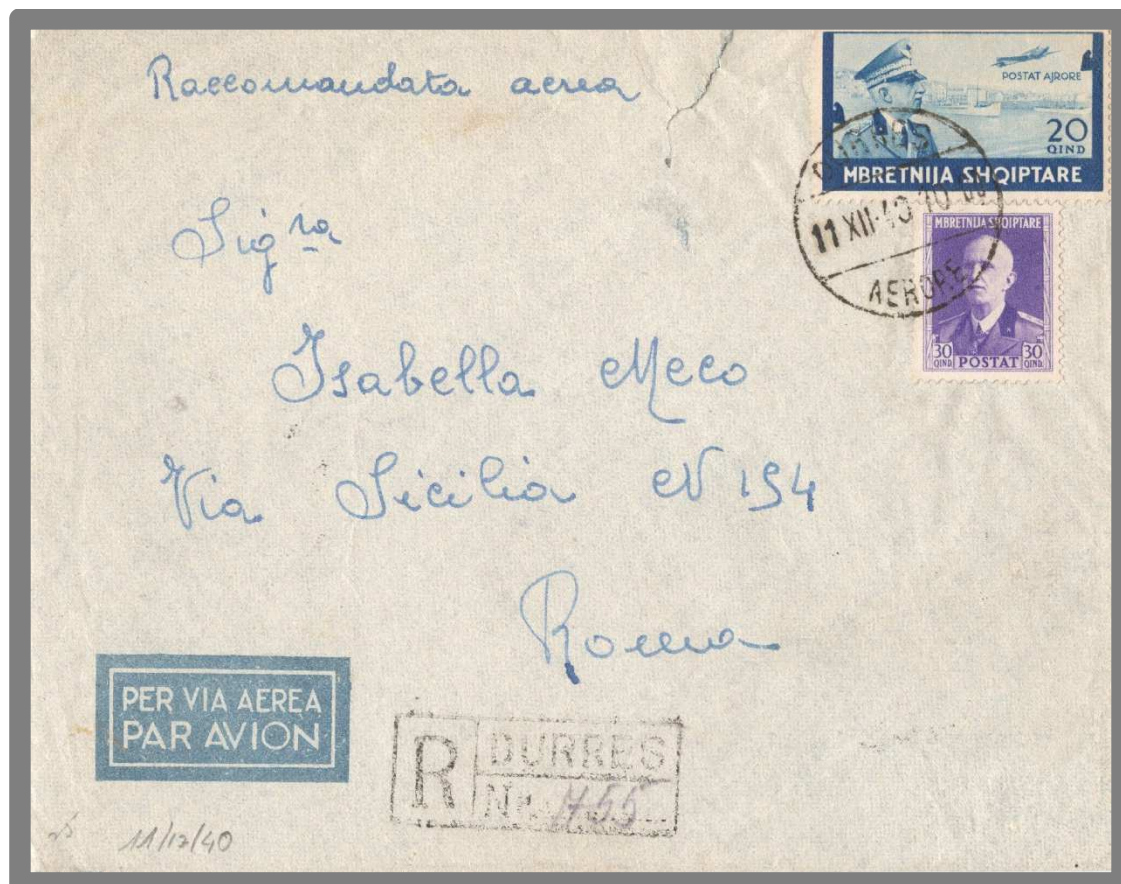 Raccomandata aerea
POSTAT AJRORE
20
QIND
MBRETNIJA SHQIPTARE
DURRËS
11 XII·40 10 00
AERORE
MBRETNIJA SHQIPTARE
30 QIND. POSTAT 30 QIND.
Sigra
Isabella Meco
Via Sicilia N 154
Roma
PER VIA AEREA
PAR AVION
R DURRES
Nr. 755
11/12/40